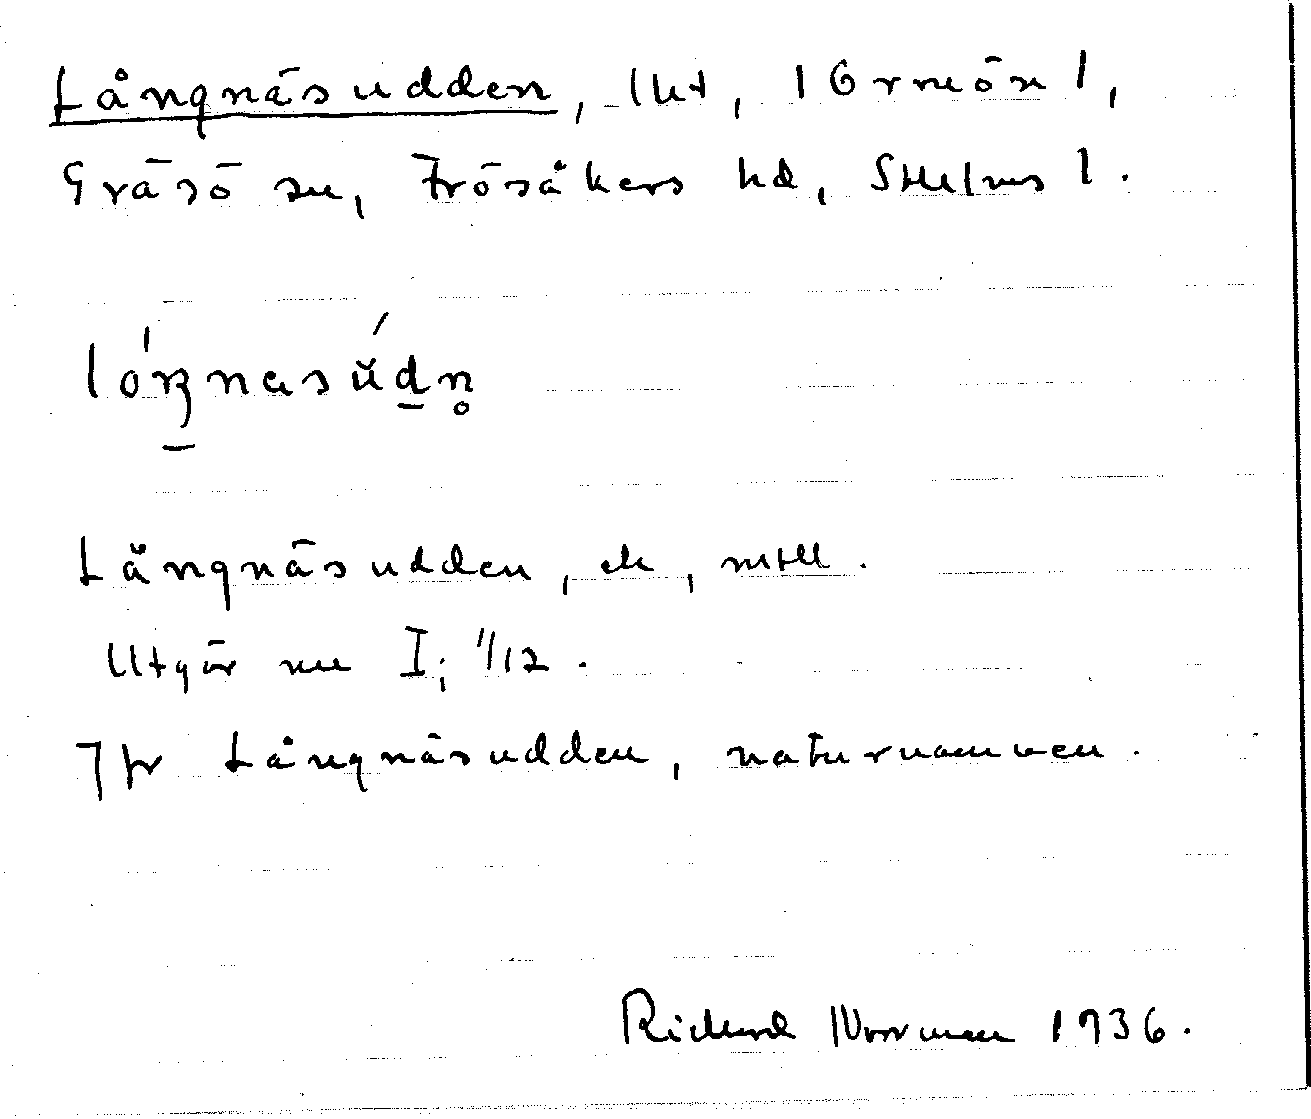 Långnäsudden, lht, [Örmön],
Gräsö sn, Frösåkers hd, Sthlms l.
lóŋnasŭ́dn̥
Långnäsudden, ek, mtll.
Utgör nu I; 1/12.
Jfr Långnäsudden, naturnamnen.
Richard Norrman 1936.